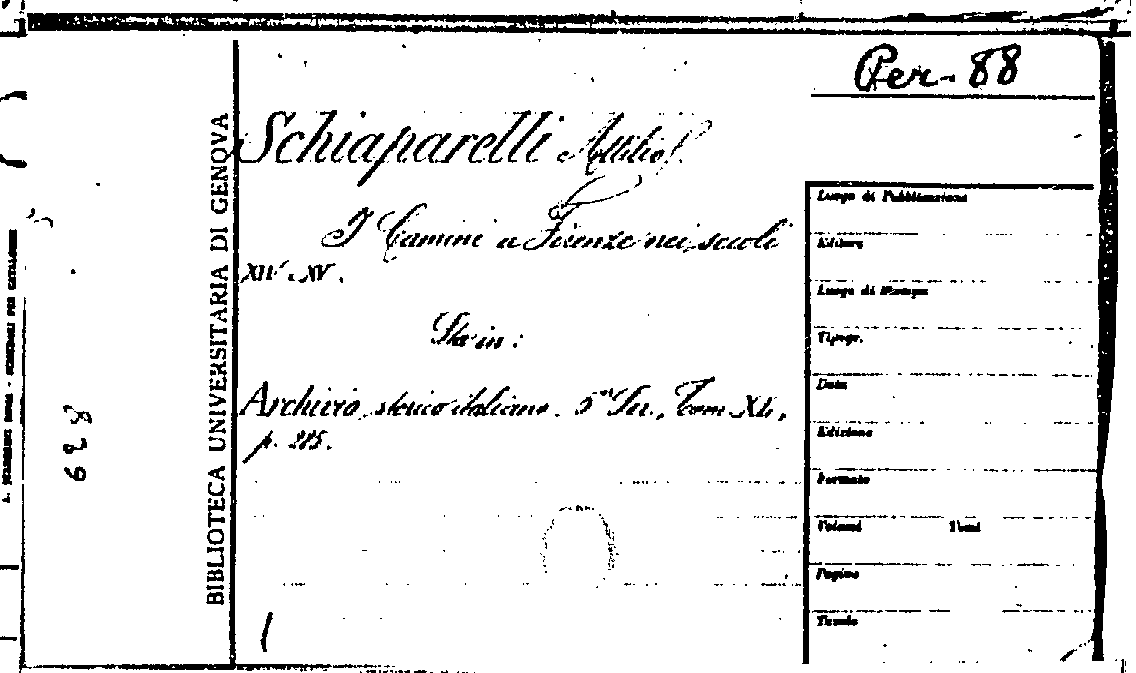 Per-88
Schiaparelli Attilio.
I Camini a Firenze nei secoli
XIV e XV.
Sta in:
Archivio storico italiano. 5ª Ser., Tom. XL,
p. 215.
BIBLIOTECA UNIVERSITARIA DI GENOVA
Luogo di Pubblicazione
Editore
Luogo di Stampa
Tipogr.
Data
Edizione
Formato
Volumi
Pagine
Tavole